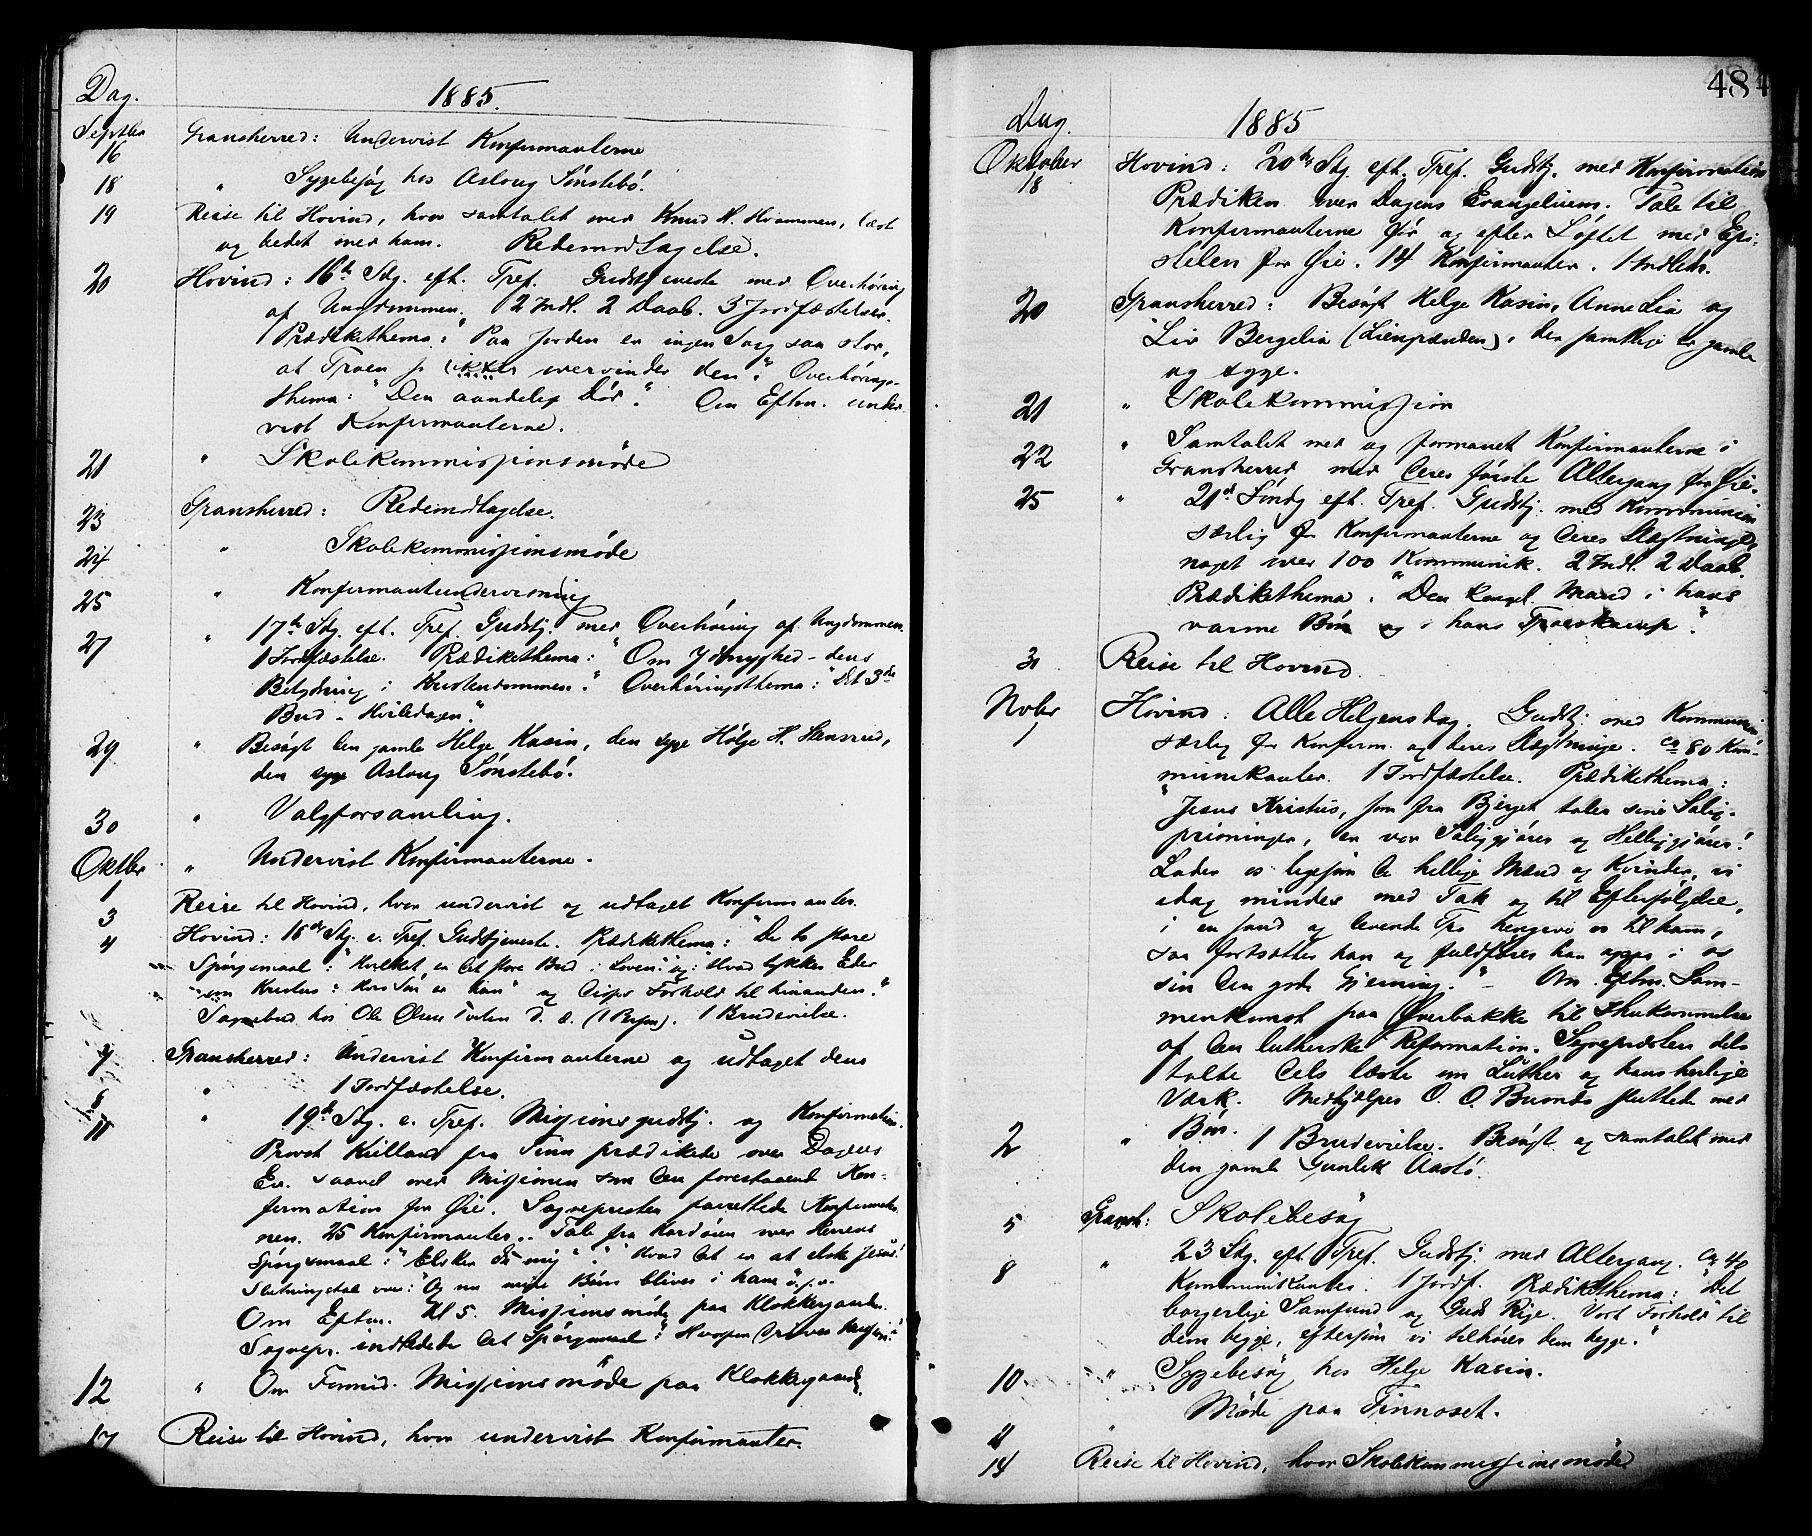 Dag. 1885.
Septbr
16 Gransherred: Undervist Konfirmanterne
18 " Sygebesøg hos Aslaug Sønstebö.
19 Reise til Hovind, hvor samtalet med Knud N. Hvammen, læst
og bedet med ham. Redemodtagelse.
20 Hovind: 16de Sdg. eft. Tref. Gudstjeneste med Overhøring
af Ungdommen. 2 Indl. 2 Daab. 3 Jordfæstelser.
Prædikethema: "Paa Jorden er ingen Sorg saa stor,
at Troen jo ikke overvinder den." Overhørings-
thema: "Den aandelig Død". Om Eftm. under-
vist Konfirmanterne.
21 " Skolekommissjonsmøde
23 Gransherred: Redemodtagelse.
24 " Skolekommissjonsmøde
25 " Konfirmantundervisning
27 " 17de Sdg. eft. Tref. Gudstj. med Overhøring af Ungdommen.
1 Jordfæstelse. Prædikethema: "Om Ydmyghed - dens
Betydning i Kristendommen." Overhøringsthema: "Det 3de
Bud - Hviledagen".
29 " Besøgt den gamle Helge Kasin, den syge Helge H. Stensrud,
den syge Aslaug Sønstebö.
30 " Valgforsamling.
Oktbr
1 " Undervist Konfirmanterne.
3 Reise til Hovind, hvor undervist og udtaget Konfirmanter.
4 Hovind: 18de Sdg. e. Tref. Gudstjeneste. Prædikethema: "De to store
Spørgsmaal: "Hvilket er det store Bud i Loven" og: "Hvad tykkes Eder
om Kristus: Hvis Søn er han" og disses Forhold til hinanden."
Sognebud hos Ole Olsen (1 Person). 1 Brudevielse.
7 Gransherred: Undervist Konfirmanterne og udtaget dem
8 " 1 Jordfæstelse.
11 " 19de Sdg. e. Tref. Missjonsgudstj. og Konfirmation.
Provst Kielland fra Tinn prædikede over Dagens
Ev. saavel med Missjonen som den forestaaende Kon-
firmation for Øie. Sognepresten forrettede Konfirmatio-
nen. 25 Konfirmanter. Tale fra Kordøren over Herrens
Spørgsmaal: "Elsker du mig". "Hvad det er at elske Jesus!
Slutningstale over: "Og nu mine Børn bliver i ham" o.s.v.
Om Eftm. Kl 5. Missjonsmøde paa Klokkergaarden.
Sognepr. indledede det Spørgsmaal: "Hvorfor driver Missjon?"
12 " Om Formid. Missjonsmøde paa Klokkergaarden.
17 Reise til Hovind, hvor undervist Konfirmanter.
484
Dag. 1885
Oktober
18 Hovind: 20de Sdg. eft. Tref. Gudstj. med Konfirmation
Prædiken over Dagens Evangelium. Tale til
Konfirmanterne før og efter Løftet med Epi-
stelen for Øie. 14 Konfirmanter. 1 Indled.
20 Gransherred: Besøgt Helge Kasin, Anne Lia og
Liv Bergelia (Liengrænden), der samtlige er gamle
og syge.
21 " Skolekommissjon
22 " Samtalet med og formanet Konfirmanterne i
Gransherred med deres første Altergang for Øie.
25 " 21de Søndg eft. Tref. Gudstj. med Kommunion
særlig for Konfirmanterne og deres Slægtninge,
noget over 100 Kommunik. 2 Indl. 2 Daab.
Prædikethema: "Den kongel. Mand i hans
varme Bøn og i hans Troeskamp."
31 Reise til Hovind.
Novbr
1 Hovind: Alle Helgensdag. Gudstj. med Kommunion
særlig for Konfirm. og deres Slægtninge. ca 80 Kom-
munikanter. 1 Jordfæstelse. Prædikethema:
"Jesus Kristus, som fra Bjerget taler sine Salig-
prisninger, er vor Saliggjører og Helliggjører!
Lader os ligesom de hellige Mænd og Kvinder, vi
idag mindes med Tak og til Efterfølgelse,
i en sand og levende Tro hengive os til ham,
saa fortsætter han og fuldfører han ogsaa i os
sin den gode Gjerning." - Om Eftm. Sam-
menkomst paa Øverbakke til Ihukommelse
af den lutherske Reformation. Sognepresten dels
talte dels læste om Luther og hans herlige
Værk. Medhjælper O. O. Busnes sluttede med
Bøn.
2 " 1 Brudevielse. Besøgt og samtalet med
den gamle Gunlek Aastö.
5 Gransh: Skolebesøg
8 " 23 Sdg. eft. Tref. Gudstj. med Altergang. Ca 40
Kommunikanter. 1 Jordf. Prædikethema: "Det
borgerlige Samfund og Guds Rige. Vort Forhold til
dem begge, eftersom vi tilhøre dem begge."
10 " Sygebesøg hos Helge Kasin.
11 " Møde paa Tinnoset.
14 Reise til Hovind, hvor Skolekommissjonsmøde